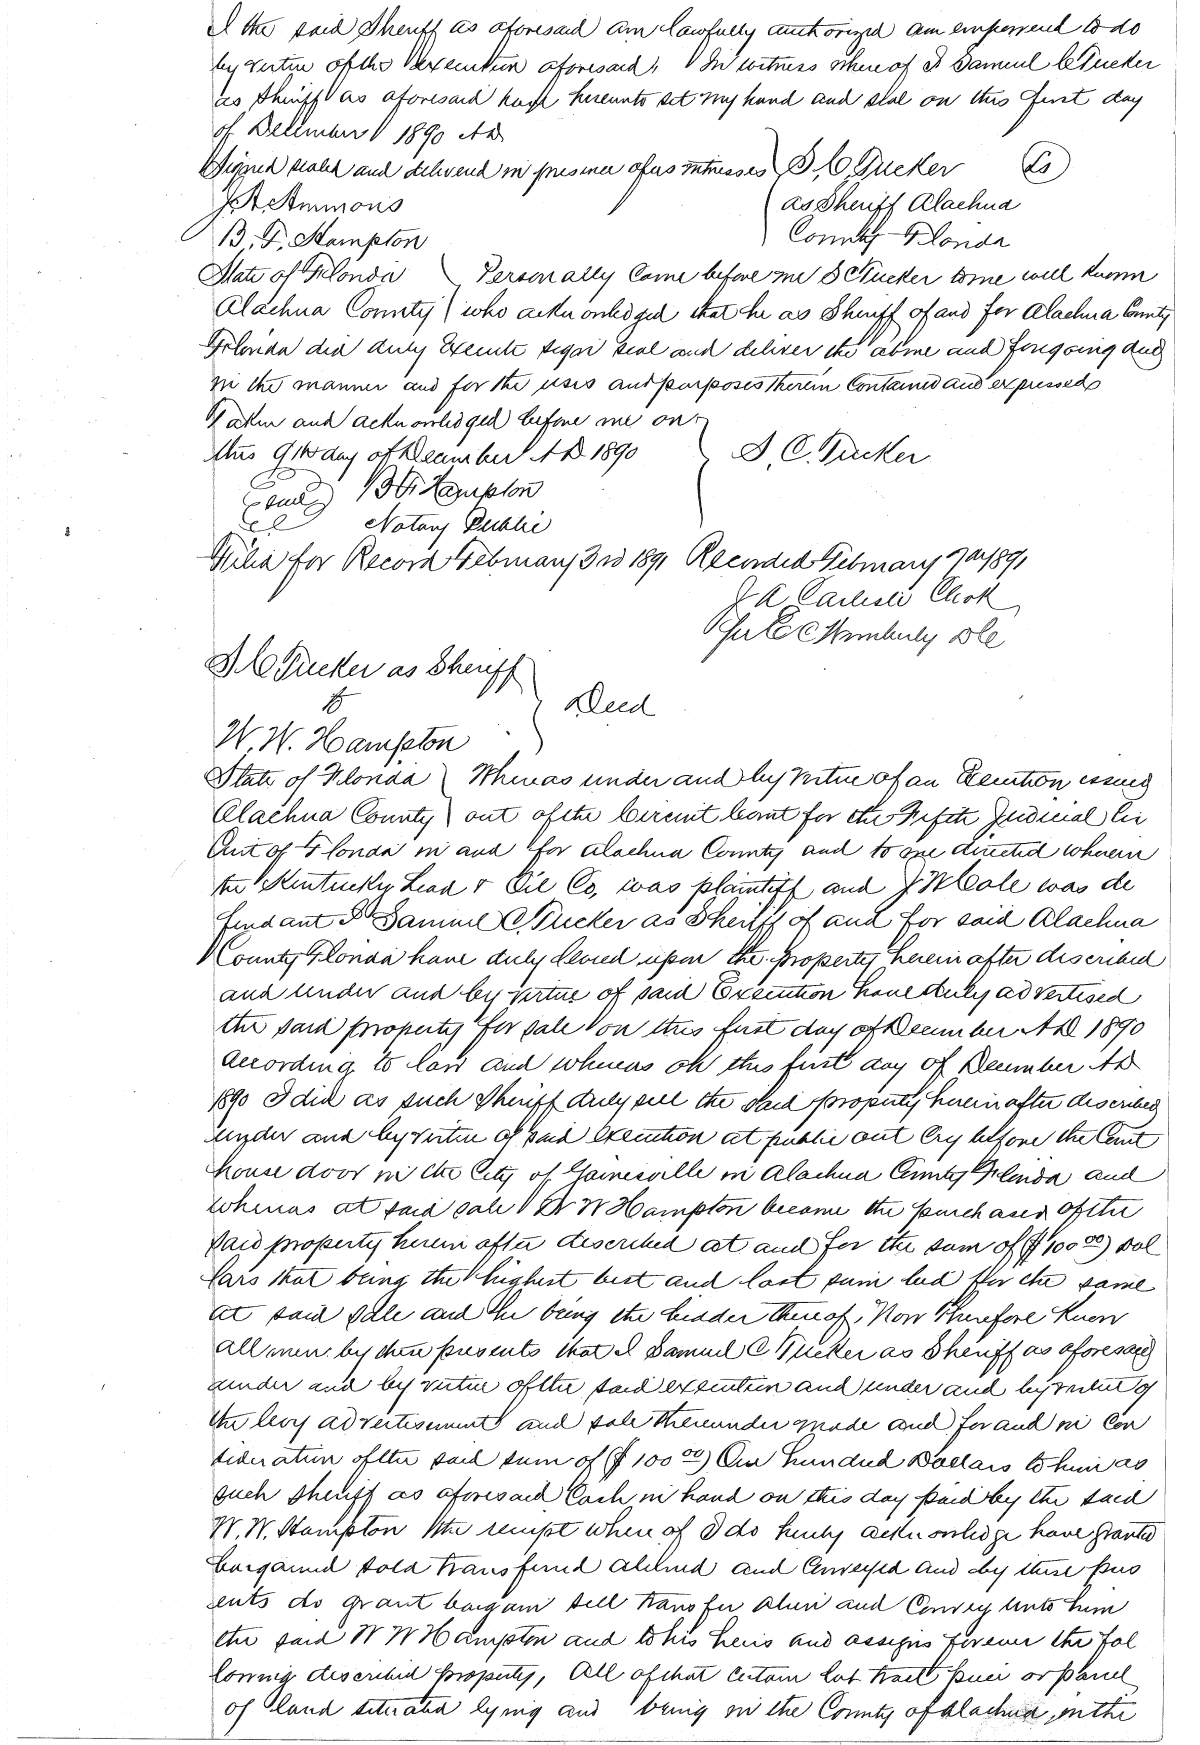 I the said Sheriff as aforesaid am lawfully authorized am empowered to do
by virtue of the execution aforesaid. In witness where of I Samuel C Tucker
as Sheriff as aforesaid have hereunto set my hand and seal on this first day
of December 1890 AD
Signed sealed and delivered in presence of us witnesses S. C. Tucker Ls
J. A. Ammons as Sheriff Alachua
B. F. Hampton County Florida
State of Florida Personally came before me S C Tucker to me well known
Alachua County who acknowledged that he as Sheriff of and for Alachua County
Florida did duly Execute sign seal and deliver the above and foregoing deed
in the manner and for the uses and purposes therein contained and expressed
Taken and acknowledged before me on
this 9th day of December A D 1890 S. C. Tucker
Seal B F Hampton
Notary Public
Filed for Record February 3rd 1891 Recorded February 7th 1891
J A Carlisle Clerk
Per E C Wimberly DC
S. C Tucker as Sheriff
to Deed
W. W. Hampton
State of Florida Whereas under and by virtue of an Execution issued
Alachua County out of the Circuit Court for the Fifth Judicial Cir
cuit of Florida in and for Alachua County and to me directed wherein
the Kentucky Lead & Oil Co, was plaintiff and J W Cole was de
fendant I Samuel C. Tucker as Sheriff of and for said Alachua
County Florida have duly levied upon the property herein after discribed
and under and by virtue of said Execution have duly advertised
the said property for sale on this first day of December A D 1890
according to law and whereas on this first day of December A D
1890 I did as such Sheriff duly sell the said property herein after described
under and by virtue of said execution at public out cry before the Court
house door in the City of Gainesville in Alachua County Florida and
whereas at said sale W W Hampton became the purchaser of the
said property herein after described at and for the sum of ($100 00) Dol
lars that being the highest best and last sum bid for the same
at said sale and he being the bidder thereof, Now Therefore Know
all men by these presents that I Samuel C Tucker as Sheriff as aforesaid
under and by virtue of the said execution and under and by virtue of
the levy advertisement and sale thereunder made and for and in con
sideration of the said sum of ($100 00) One hundred Dollars to him as
such Sheriff as aforesaid Cash in hand on this day paid by the said
W. W. Hampton the receipt where of I do hereby acknowledge have granted
bargained sold transferred aliened and conveyed and by these pres
ents do grant bargain sell transfer alien and convey unto him
the said W W Hampton and to his heirs and assigns forever the fol
lowing described property, All of that certain lot tract piece or parcel
of land situated lying and being in the County of Alachua, in the